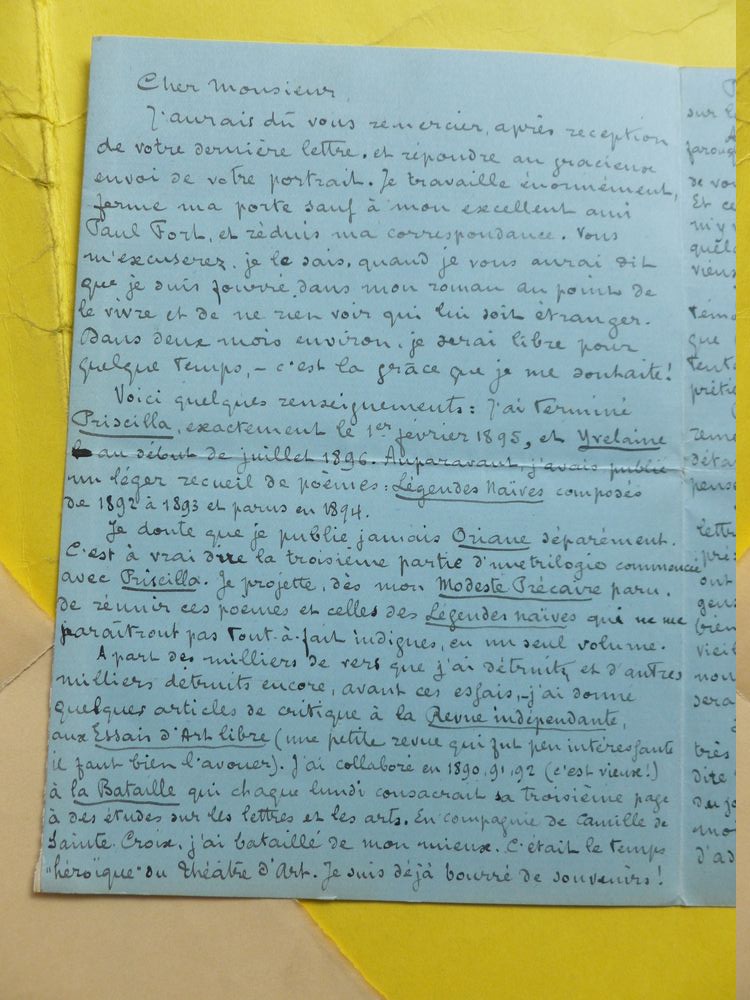 Cher Monsieur,
J'aurais dû vous remercier, après reception
de votre dernière lettre, et répondre au gracieux
envoi de votre portrait. Je travaille énormément,
ferme ma porte sauf à mon excellent ami
Paul Fort, et réduis ma correspondance. Vous
m'excuserez, je le sais, quand je vous aurai dit
que je suis fourré dans mon roman au point de
le vivre et de ne rien voir qui lui soit étranger.
Dans deux mois environ, je serai libre pour
quelque temps, – c'est la grâce que je me souhaite!
Voici quelques renseignements: J'ai terminé
Priscilla, exactement le 1er février 1895, et Yvelaine
au début de juillet 1896. Auparavant, j'avais publié
un léger recueil de poèmes: Légendes Naïves composés
de 1892 à 1893 et parus en 1894.
Je doute que je publie jamais Oriane séparément.
C'est à vrai dire la troisième partie d'une trilogie commencée
avec Priscilla. Je projette, dès mon Modeste Précaire paru,
de réunir ces poèmes et celles des Légendes naïves qui ne me
paraîtront pas tout-à-fait indignes, en un seul volume.
A part des milliers de vers que j'ai détruits et d'autres
milliers détruits encore, avant ces essais, – j'ai donné
quelques articles de critique à la Revue indépendante,
aux Essais d'Art libre (une petite revue qui fut peu intéressante
il faut bien l'avouer). J'ai collaboré en 1890, 91, 92 (c'est vieux!)
à la Bataille qui chaque lundi consacrait sa troisième page
à des études sur les lettres et les arts. En compagnie de Camille de
Sainte Croix, j'ai bataillé de mon mieux. C'était le temps
"héroïque" du Théâtre d'Art. Je suis déjà bourré de souvenirs!